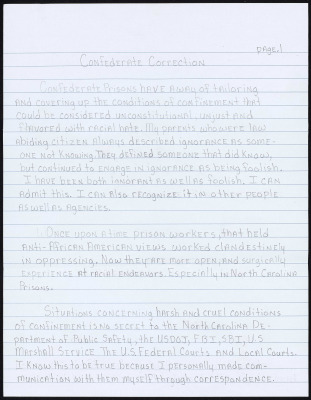 page.1
Confederate Correction
Confederate Prisons have away of tailoring
and covering up the conditions of confinement that
could be considered unconstitutional, unjust and
flavored with racial hate. My parents who were law
abiding citizen always described ignorance as some-
one not knowing. They defined someone that did know,
but continued to engage in ignorance as being foolish.
I have been both ignorant as well as foolish. I can
admit this. I can also recognize it in other people
as well as agencies.
Once upon a time prison workers, that held
anti-African American views worked clandestinely
in oppressing. Now they are more open, and surgically
experience at racial endeavors. Especially in North Carolina
Prisons.
Situations concerning harsh and cruel conditions
of confinement is no secret to the North Carolina De-
partment of Public Safety, the USDOJ, FBI, SBI, U.S
Marshall Service The U.S. Federal Courts and Local Courts.
I know this to be true because I personally made com-
munication with them myself through correspondence.